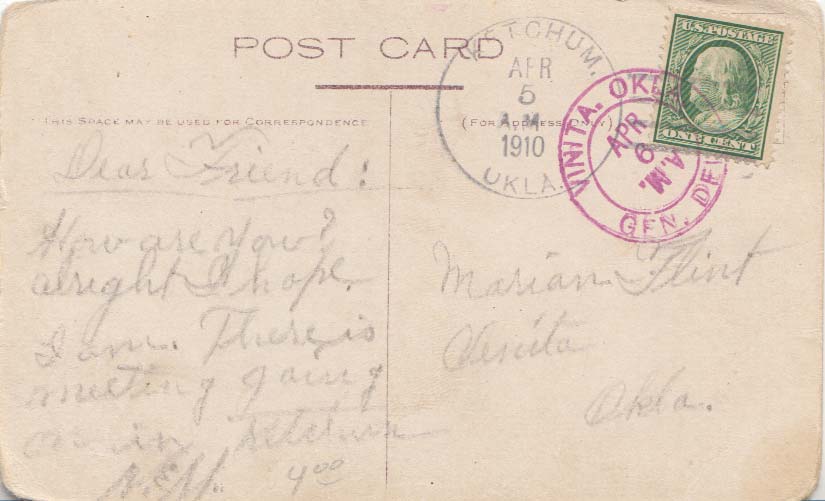 POST CARD
THIS SPACE MAY BE USED FOR CORRESPONDENCE
(FOR ADDRESS ONLY)
KETCHUM,
APR
5
A.M.
1910
OKLA.
VINITA, OKLA.
APR
6
A.M.
GEN. DEL.
U.S. POSTAGE
ONE CENT
Dear Friend:
How are you?
alright I hope.
I am. There is
meeting going
on in Ketchum
4 00
Marian Flint
Venita
Okla.